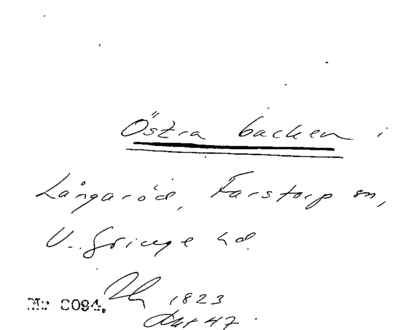 Östra backen i
Långaröd, Farstorp sn,
V. Göinge hd.
1823